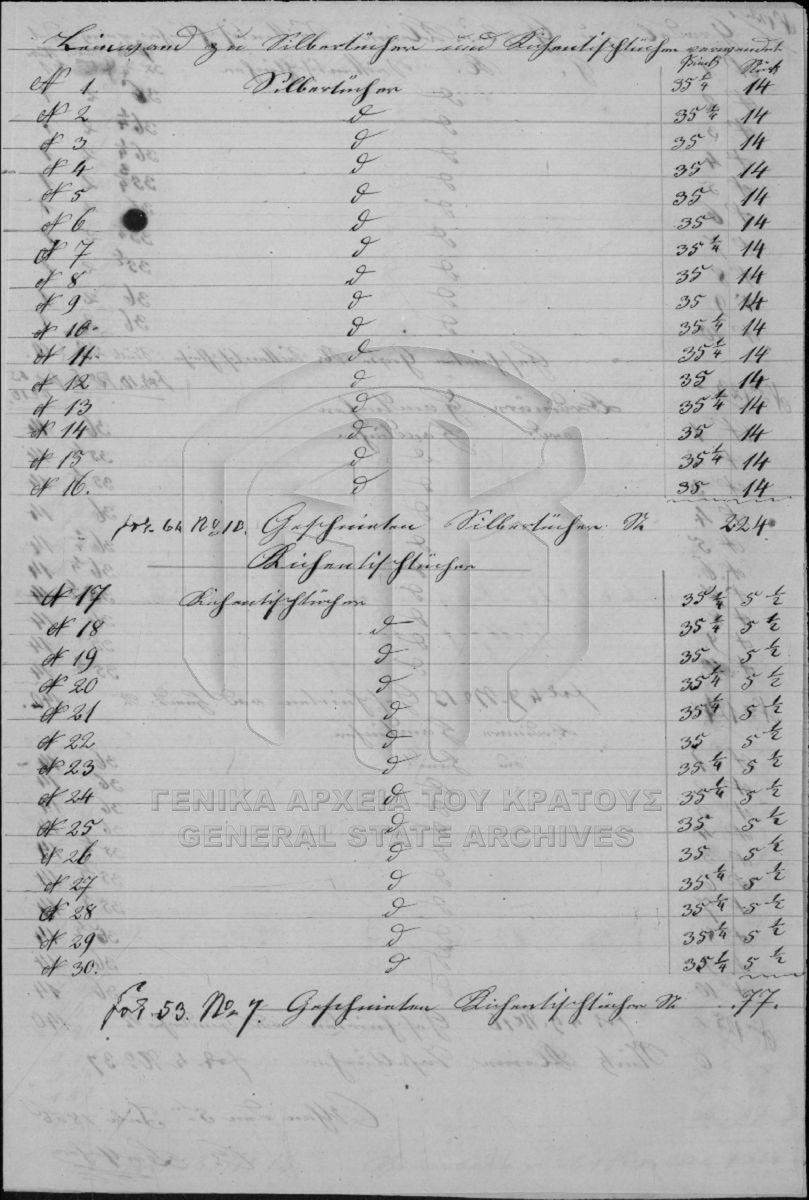 Leinwand zu Silbertücher und Kichentischtücher verwendet
Pieck Stück
N 1. Silbertücher 35 1/4 14
N 2 d 35 1/4 14
N 3 d 35 14
N 4 d 35 14
N 5 d 35 14
N 6 d 35 14
N 7 d 35 1/4 14
N 8 d 35 14
N 9 d 35 14
N 10. d 35 1/4 14
N 11. d 35 1/4 14
N 12 d 35 14
N 13 d 35 1/4 14
N 14 d 35 14
N 15 d 35 1/4 14
N 16. d 35 14
fol. 64 No 10. Geschnieten Silbertücher St. 224.
Kichentischtücher
N 17 Kichentischtücher 35 1/4 5 1/2
N 18 d 35 1/4 5 1/2
N 19 d 35 5 1/2
N 20 d 35 1/4 5 1/2
N 21 d 35 1/4 5 1/2
N 22 d 35 5 1/2
N 23 d 35 1/4 5 1/2
N 24 d 35 1/4 5 1/2
N 25 d 35 5 1/2
N 26 d 35 5 1/2
N 27 d 35 1/4 5 1/2
N 28 d 35 1/4 5 1/2
N 29 d 35 1/4 5 1/2
N 30. d 35 1/4 5 1/2
fol. 53. No 7. Geschnieten Kichentischtücher St. 77.
ΓΕΝΙΚΑ ΑΡΧΕΙΑ ΤΟΥ ΚΡΑΤΟΥΣ
GENERAL STATE ARCHIVES